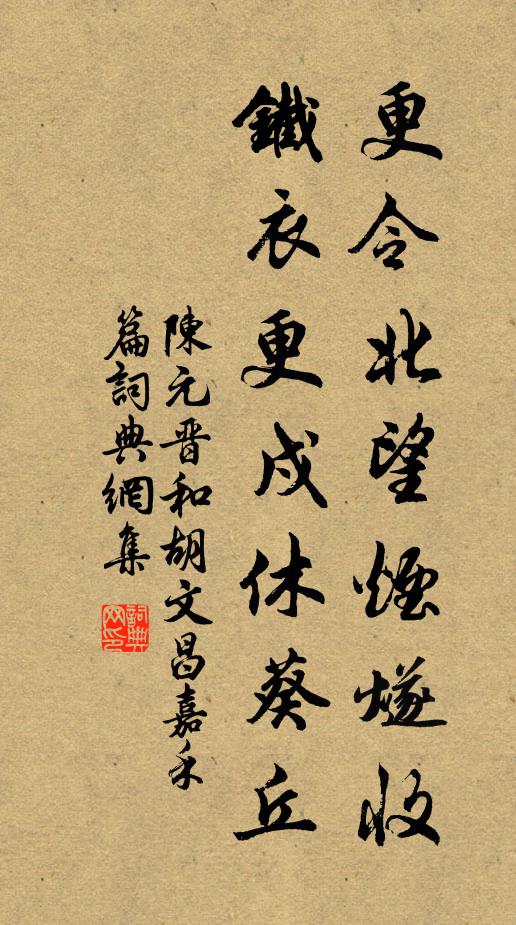 更令北望煙燧收
鐵衣更戍休葵丘
陳元晋和胡文昌嘉禾
篇詞典網集
詞典网印